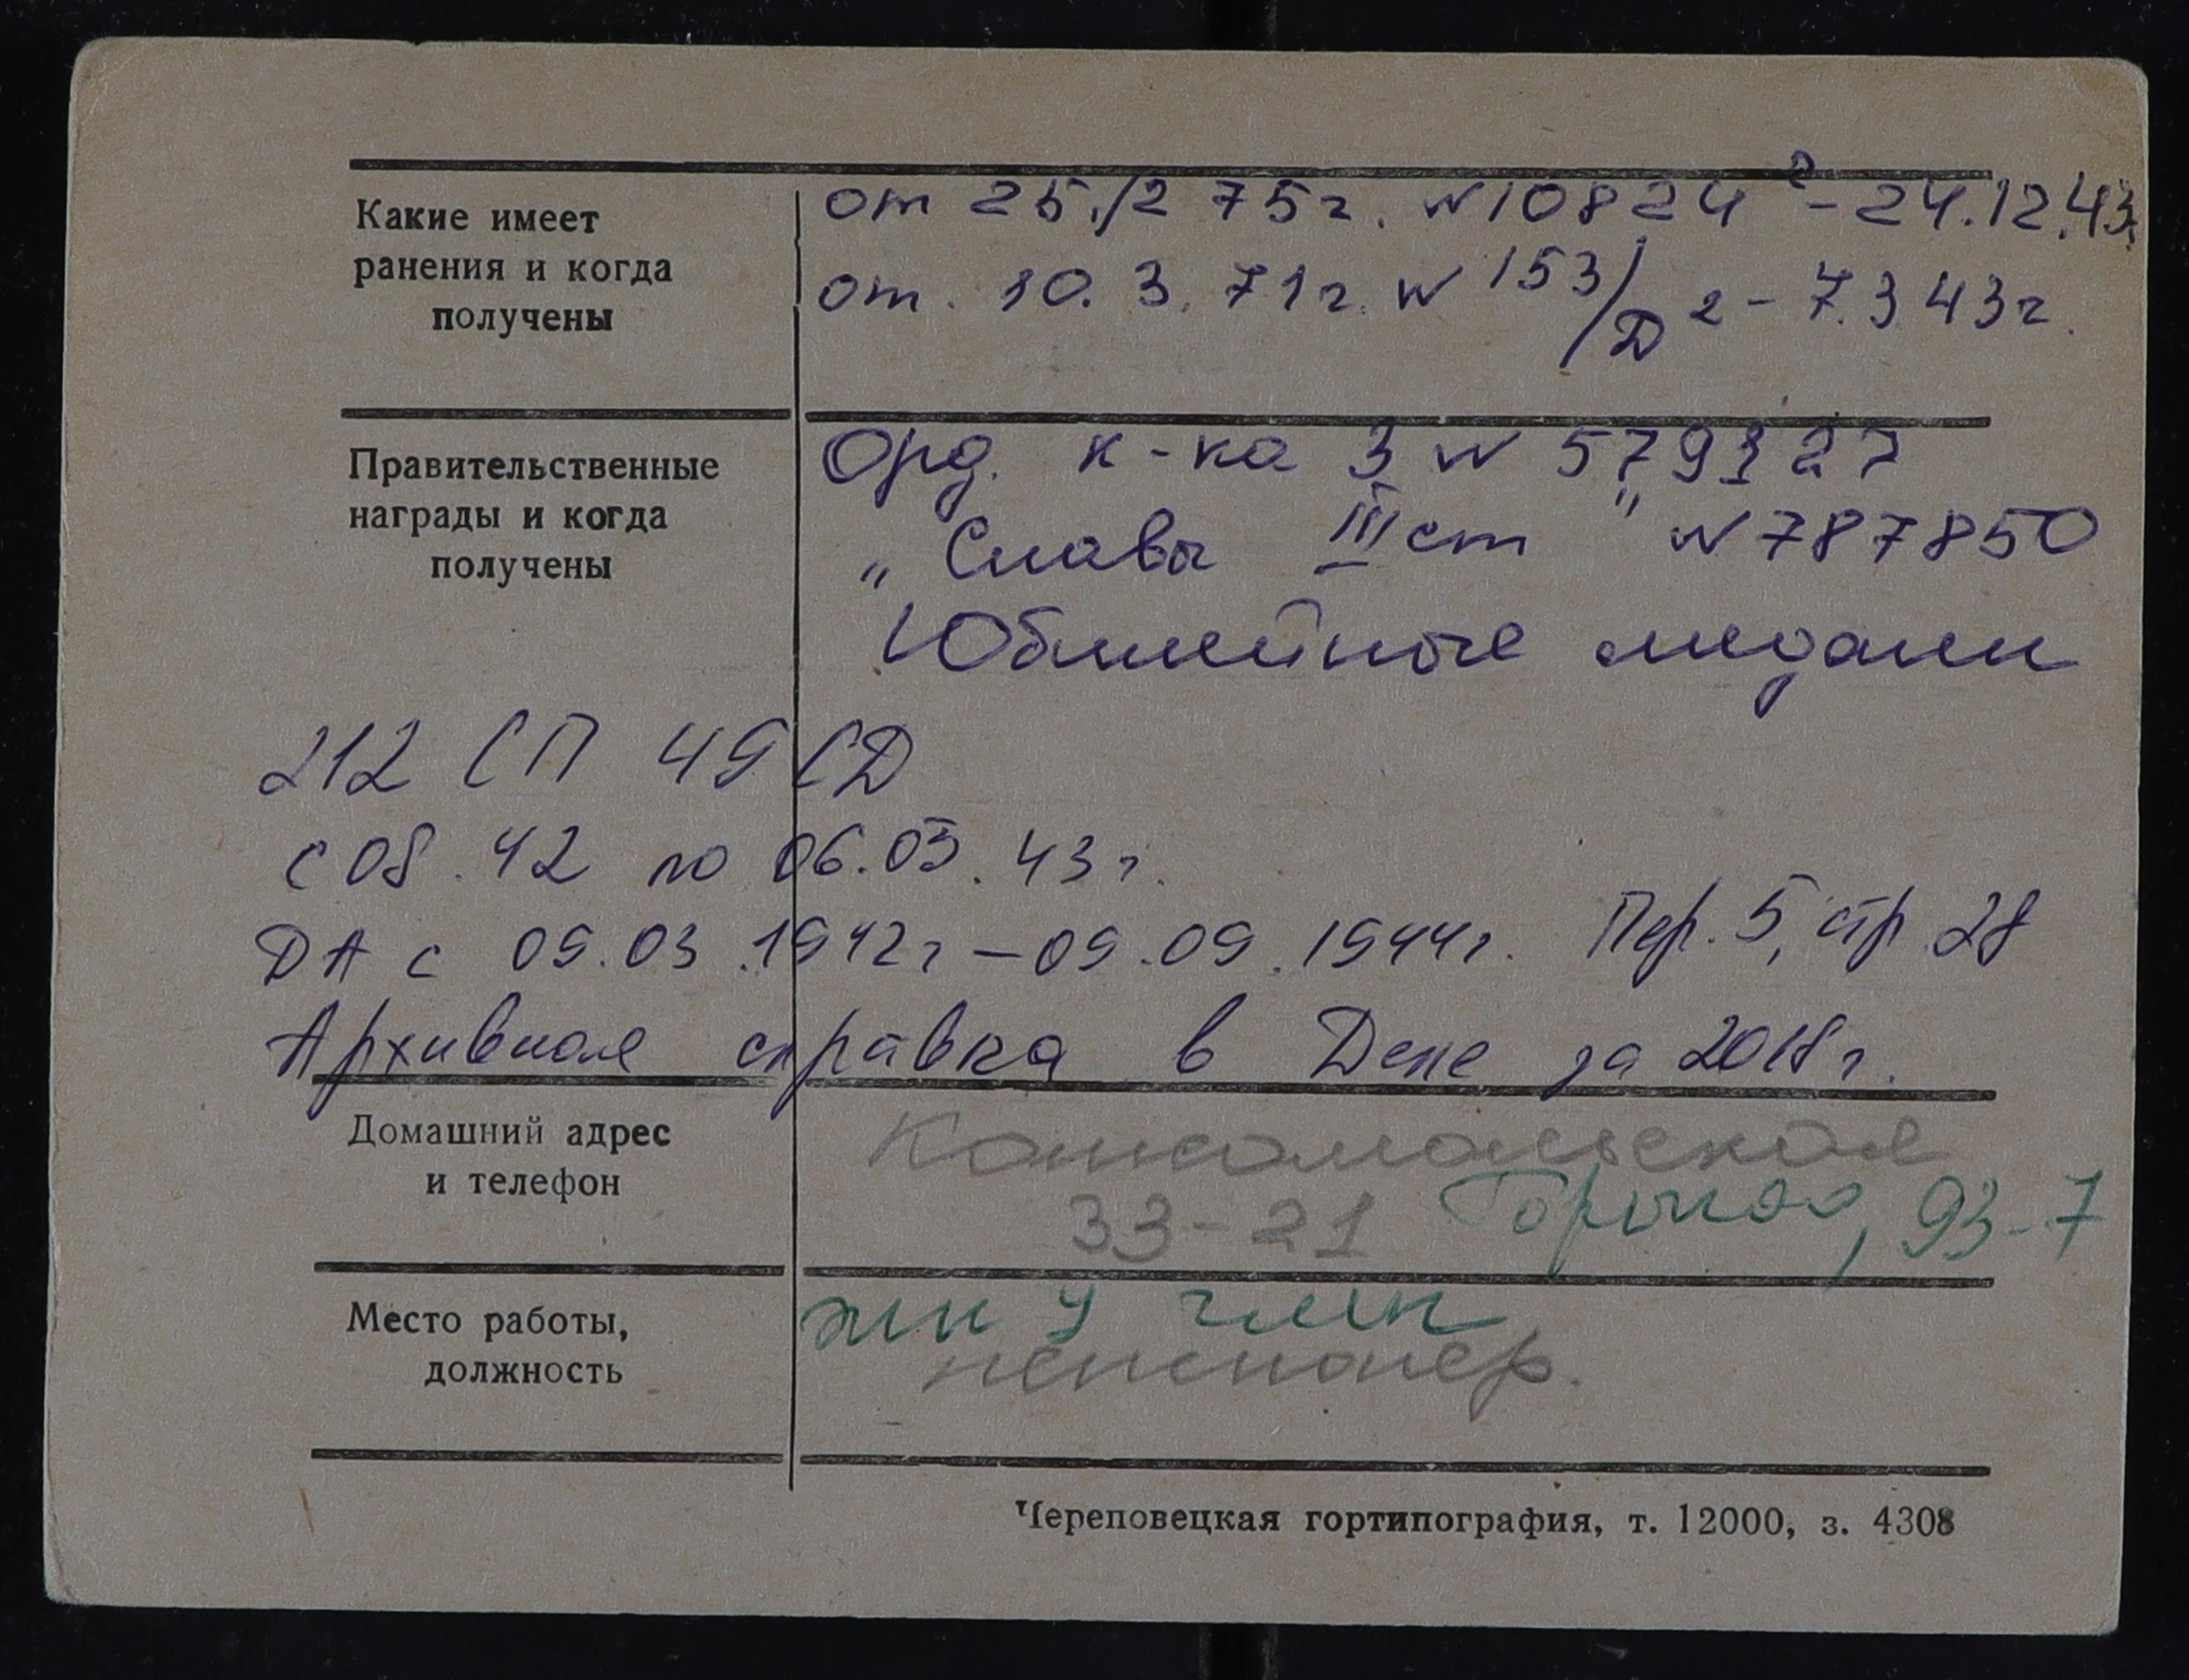 Какие имеет
ранения и когда
получены
от 25./2 75г. N 10824 г - 24.12.43.
от. 10. 3. 71г. N 153/Д 2 - 7.3 43г.
Правительственные
награды и когда
получены
Орд. к-ка З N 579127
„Славы III ст" N 787850
Юбилейные медали
212 СП 49 СД
с 08. 42 по 06.03. 43 г.
ДА с 09.03.1942г - 09.09.1944г. Пер. 5, стр 28
Архивная справка в Деле за 2018 г.
Домашний адрес
и телефон
Комсомольская
33-21
Горького, 93-7
Место работы,
должность
пенсионер.
Череповецкая гортипография, т. 12000, з. 4308